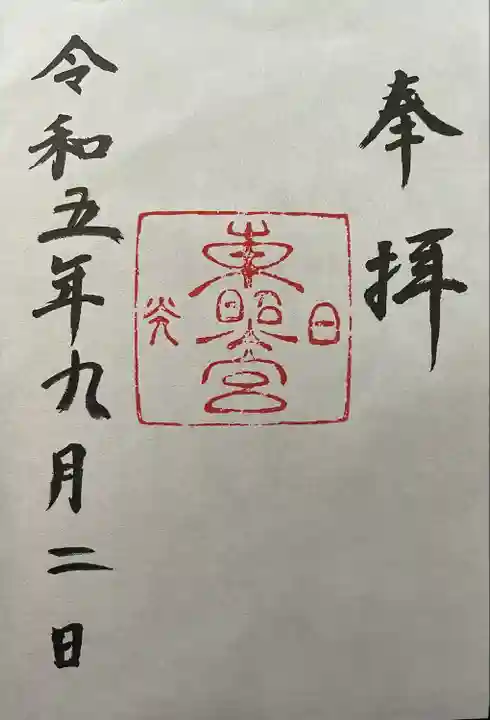 奉拝
日
東照宮
光
令和五年九月二日